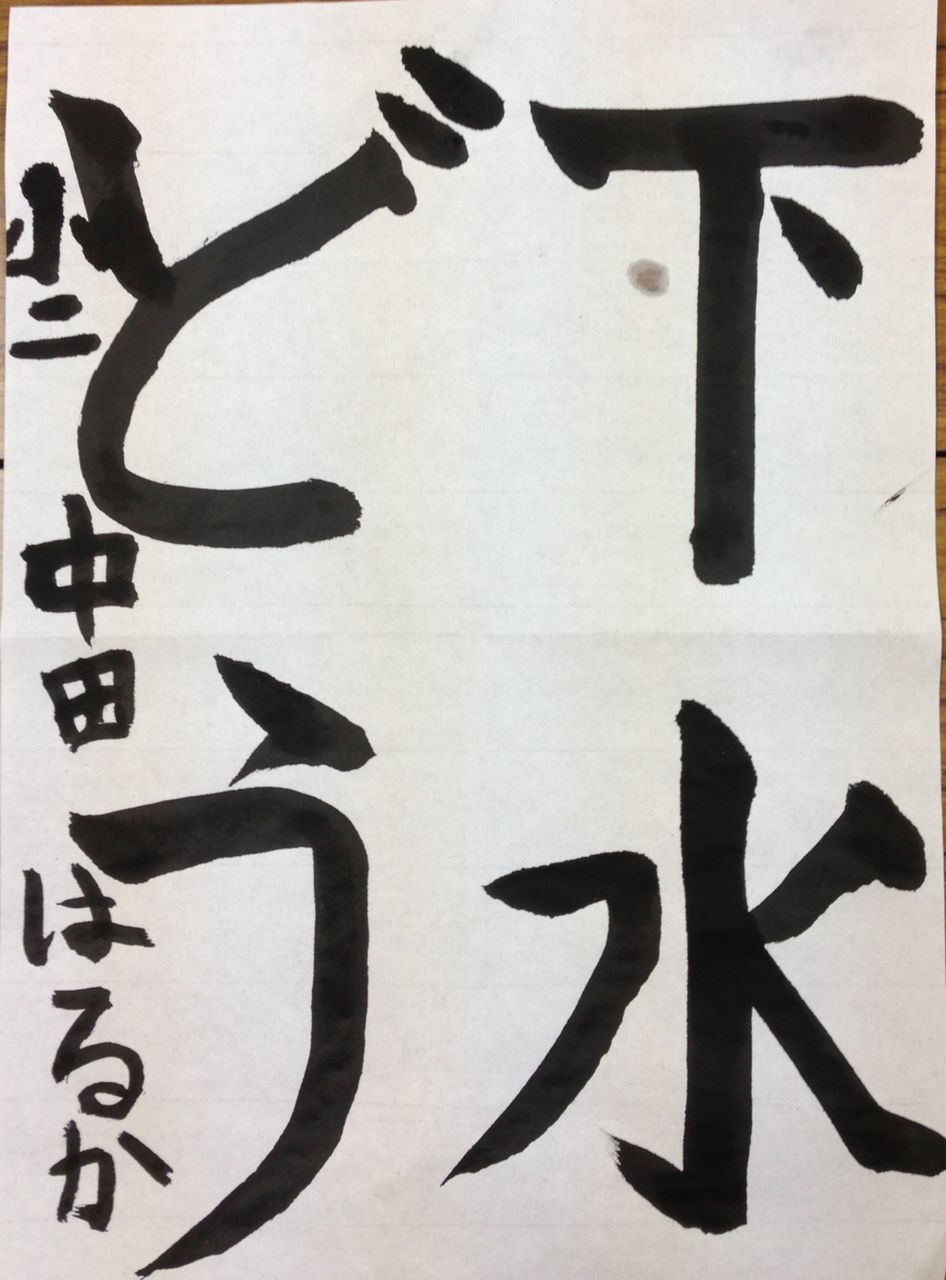 下水
どう
小二 中田 はるか